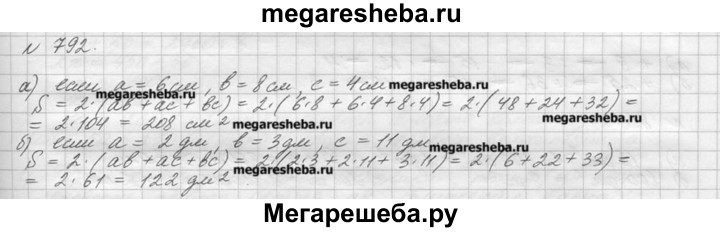 megaresheba.ru
N 792.
а) если a = 6 см, в = 8 см, с = 4 см
megaresheba.ru
S = 2·(ав + ас + вс) = 2·(6·8 + 6·4 + 8·4) = 2·(48 + 24 + 32) =
megaresheba.ru
megaresheba.ru
= 2·104 = 208 см²
megaresheba.ru
б) если а = 2 дм, в = 3 дм, с = 11 дм
megaresheba.ru
S = 2·(ав + ас + вс) = 2·(2·3 + 2·11 + 3·11) = 2·(6 + 22 + 33) =
= 2·61 = 122 дм²
megaresheba.ru
Мегарешеба.ру